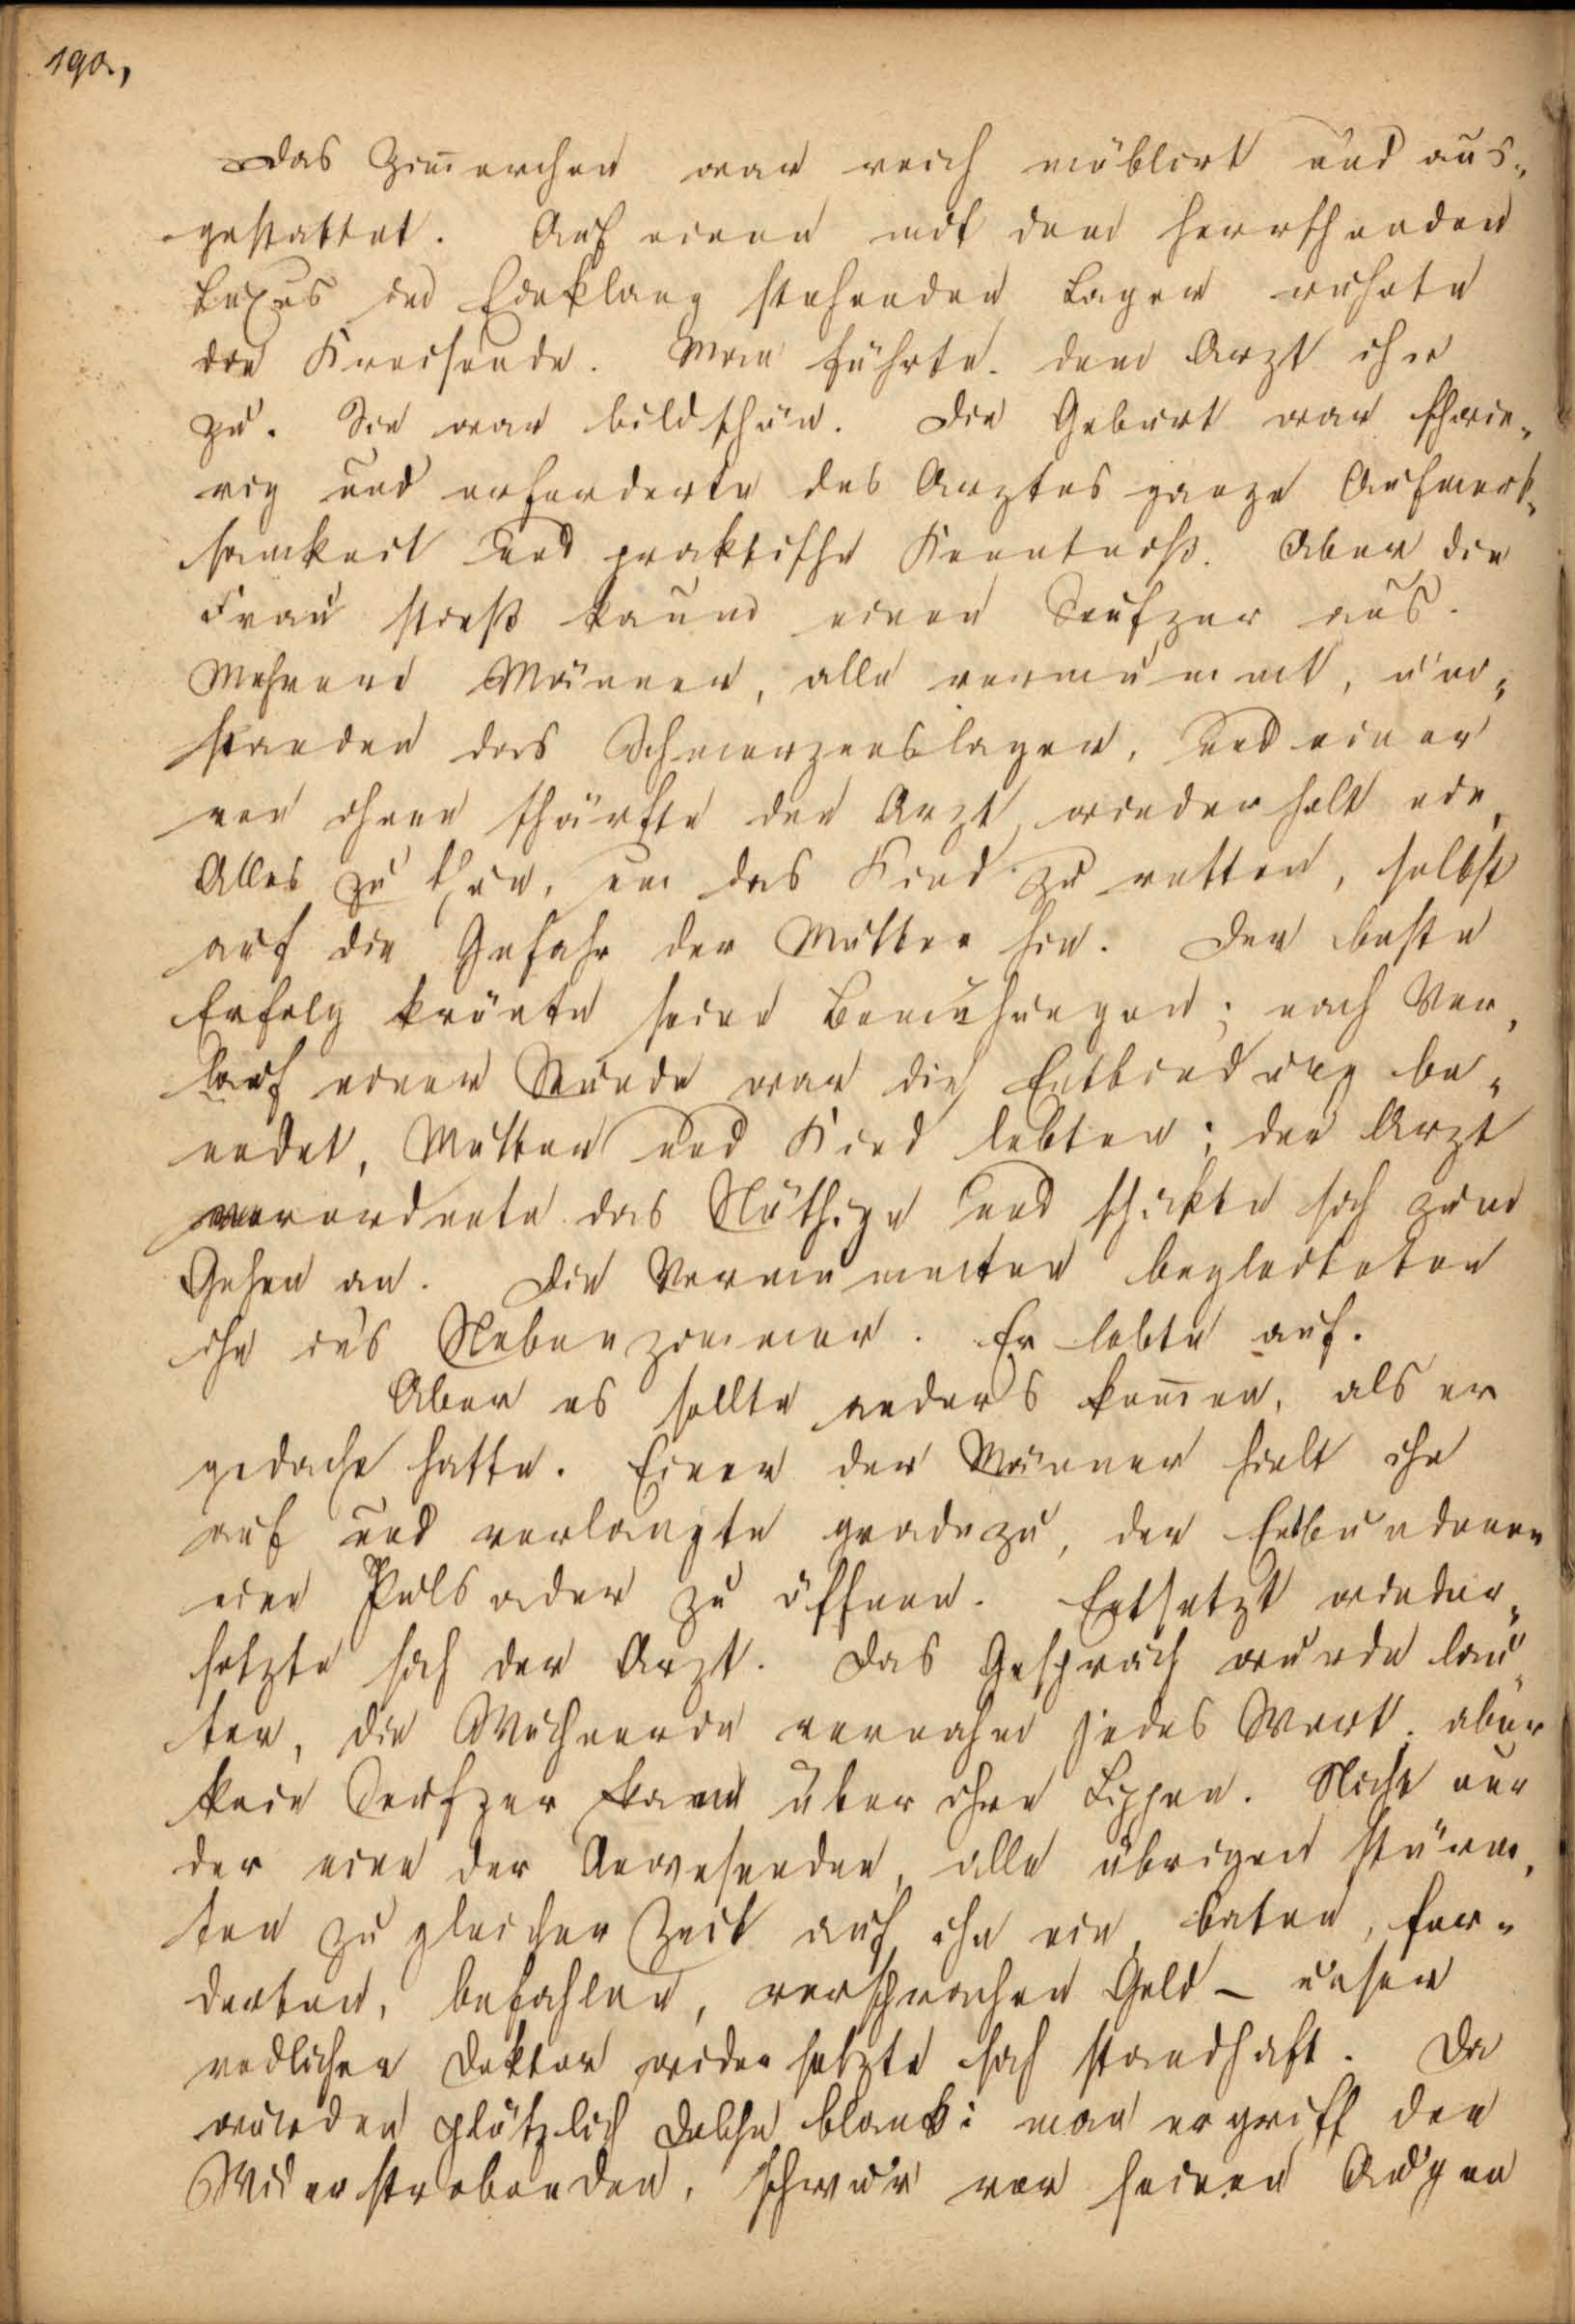 190.,
Das Zim̅erchen war reich möblirt und aus„
gestattet. Auf einem mit dem herrschenden
Luxus in Einklang stehenden Lager ruhete
die Kreisende. Man führte den Arzt ihr
zu. Sie war bildschön. Die Geburt war schwie„
rig und erforderte des Arztes ganze Aufmerk„
samkeit und praktische Kenntniß. Aber die
Frau stieß kaum einen Seufzer aus.
Mehrere Männer, alle vermummt, um„
standen das Schmerzenslager, und einer
von ihnen schärfte dem Arzt wiederholt ein,
Alles zu thun, um das Kind zu retten, selbst
auf die Gefahr der Mutter hin. Der beste
Erfolg krönte seine Bemühungen; nach Ver„
lauf einer Stunde war die Entbindung be„
endet, Mutter und Kind lebten; der Arzt
verordnete das Nöthige und schickte sich zum
Gehen an. Die Vermummten begleiteten
ihn ins Nebenzimmer. Er lebte auf.
Aber es sollte anders kom̅en, als er
gedacht hatte. Einer der Männer hielt ihn
auf und verlangte geradezu, der Entbundenen
eine Pulsader zu öffnen. Entsetzt wieder„
setzte sich der Arzt. Das Gespräch wurde lau„
ter, die Wöchnerin vernahm jedes Wort, aber
kein Seufzer kam über ihre Lippen. Nicht nur
der eine der Anwesenden, alle übrigen stürm„
ten zu gleicher Zeit auf ihn ein, baten, for„
derten, befahlen, versprachen Geld – unser
redlicher Doktor widersetzte sich standhaft. Da
wurden plötzlich Dolche blank: man ergriff den
Widerstrebenden, schwur vor seinen Augen